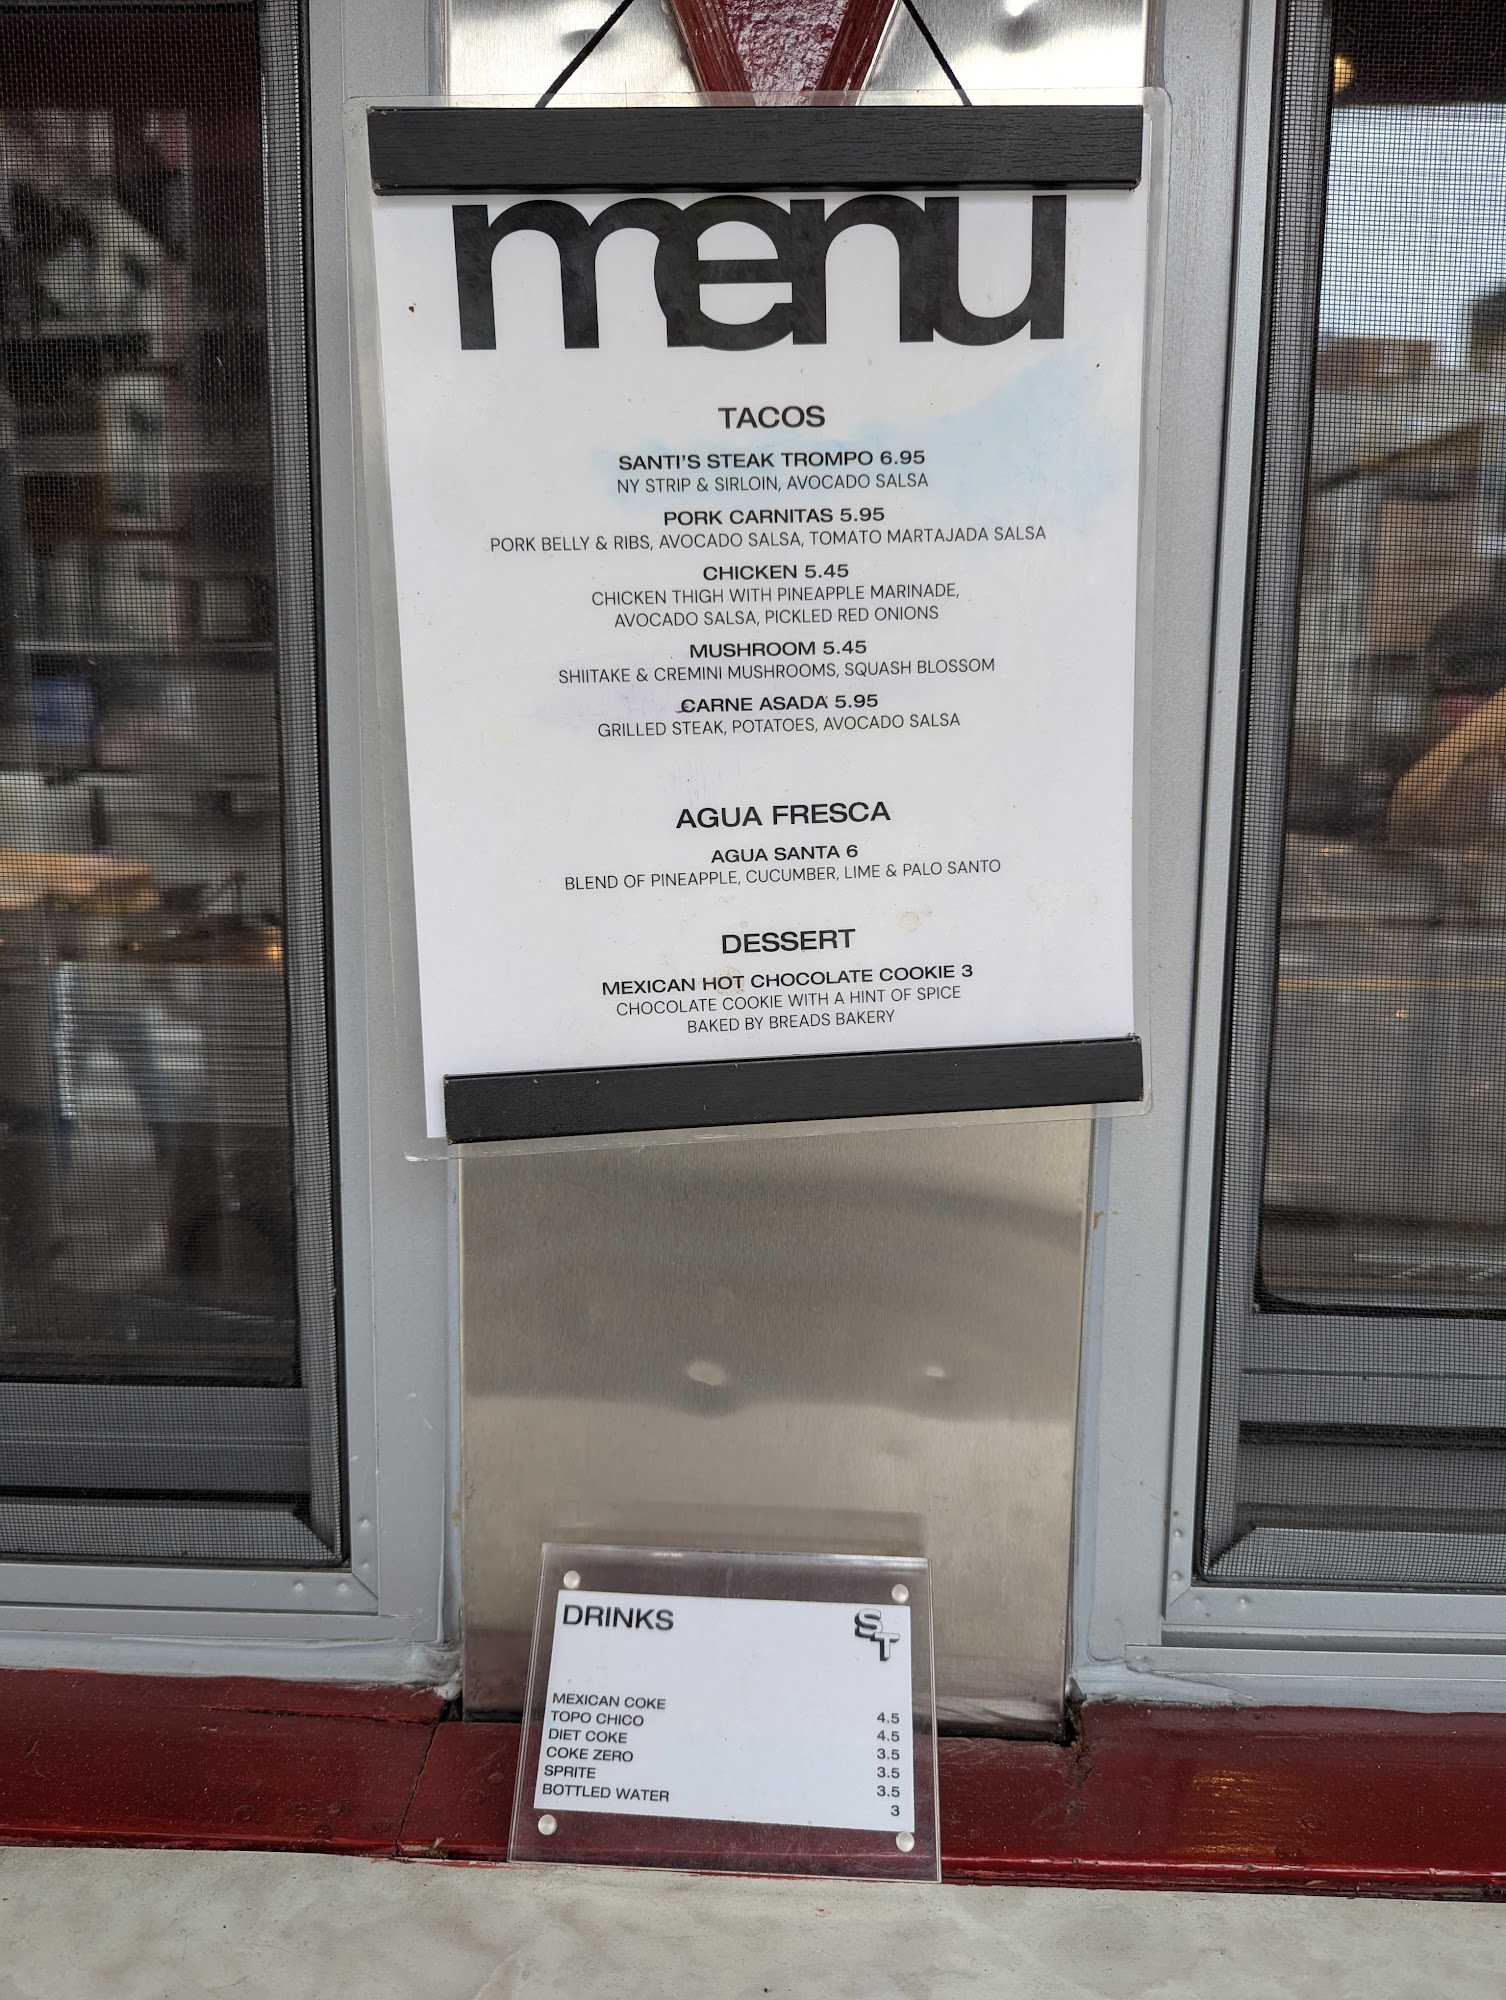 menu
TACOS
SANTI'S STEAK TROMPO 6.95
NY STRIP & SIRLOIN, AVOCADO SALSA
PORK CARNITAS 5.95
PORK BELLY & RIBS, AVOCADO SALSA, TOMATO MARTAJADA SALSA
CHICKEN 5.45
CHICKEN THIGH WITH PINEAPPLE MARINADE,
AVOCADO SALSA, PICKLED RED ONIONS
MUSHROOM 5.45
SHIITAKE & CREMINI MUSHROOMS, SQUASH BLOSSOM
CARNE ASADA 5.95
GRILLED STEAK, POTATOES, AVOCADO SALSA
AGUA FRESCA
AGUA SANTA 6
BLEND OF PINEAPPLE, CUCUMBER, LIME & PALO SANTO
DESSERT
MEXICAN HOT CHOCOLATE COOKIE 3
CHOCOLATE COOKIE WITH A HINT OF SPICE
BAKED BY BREADS BAKERY
DRINKS ST
MEXICAN COKE 4.5
TOPO CHICO 4.5
DIET COKE 3.5
COKE ZERO 3.5
SPRITE 3.5
BOTTLED WATER 3